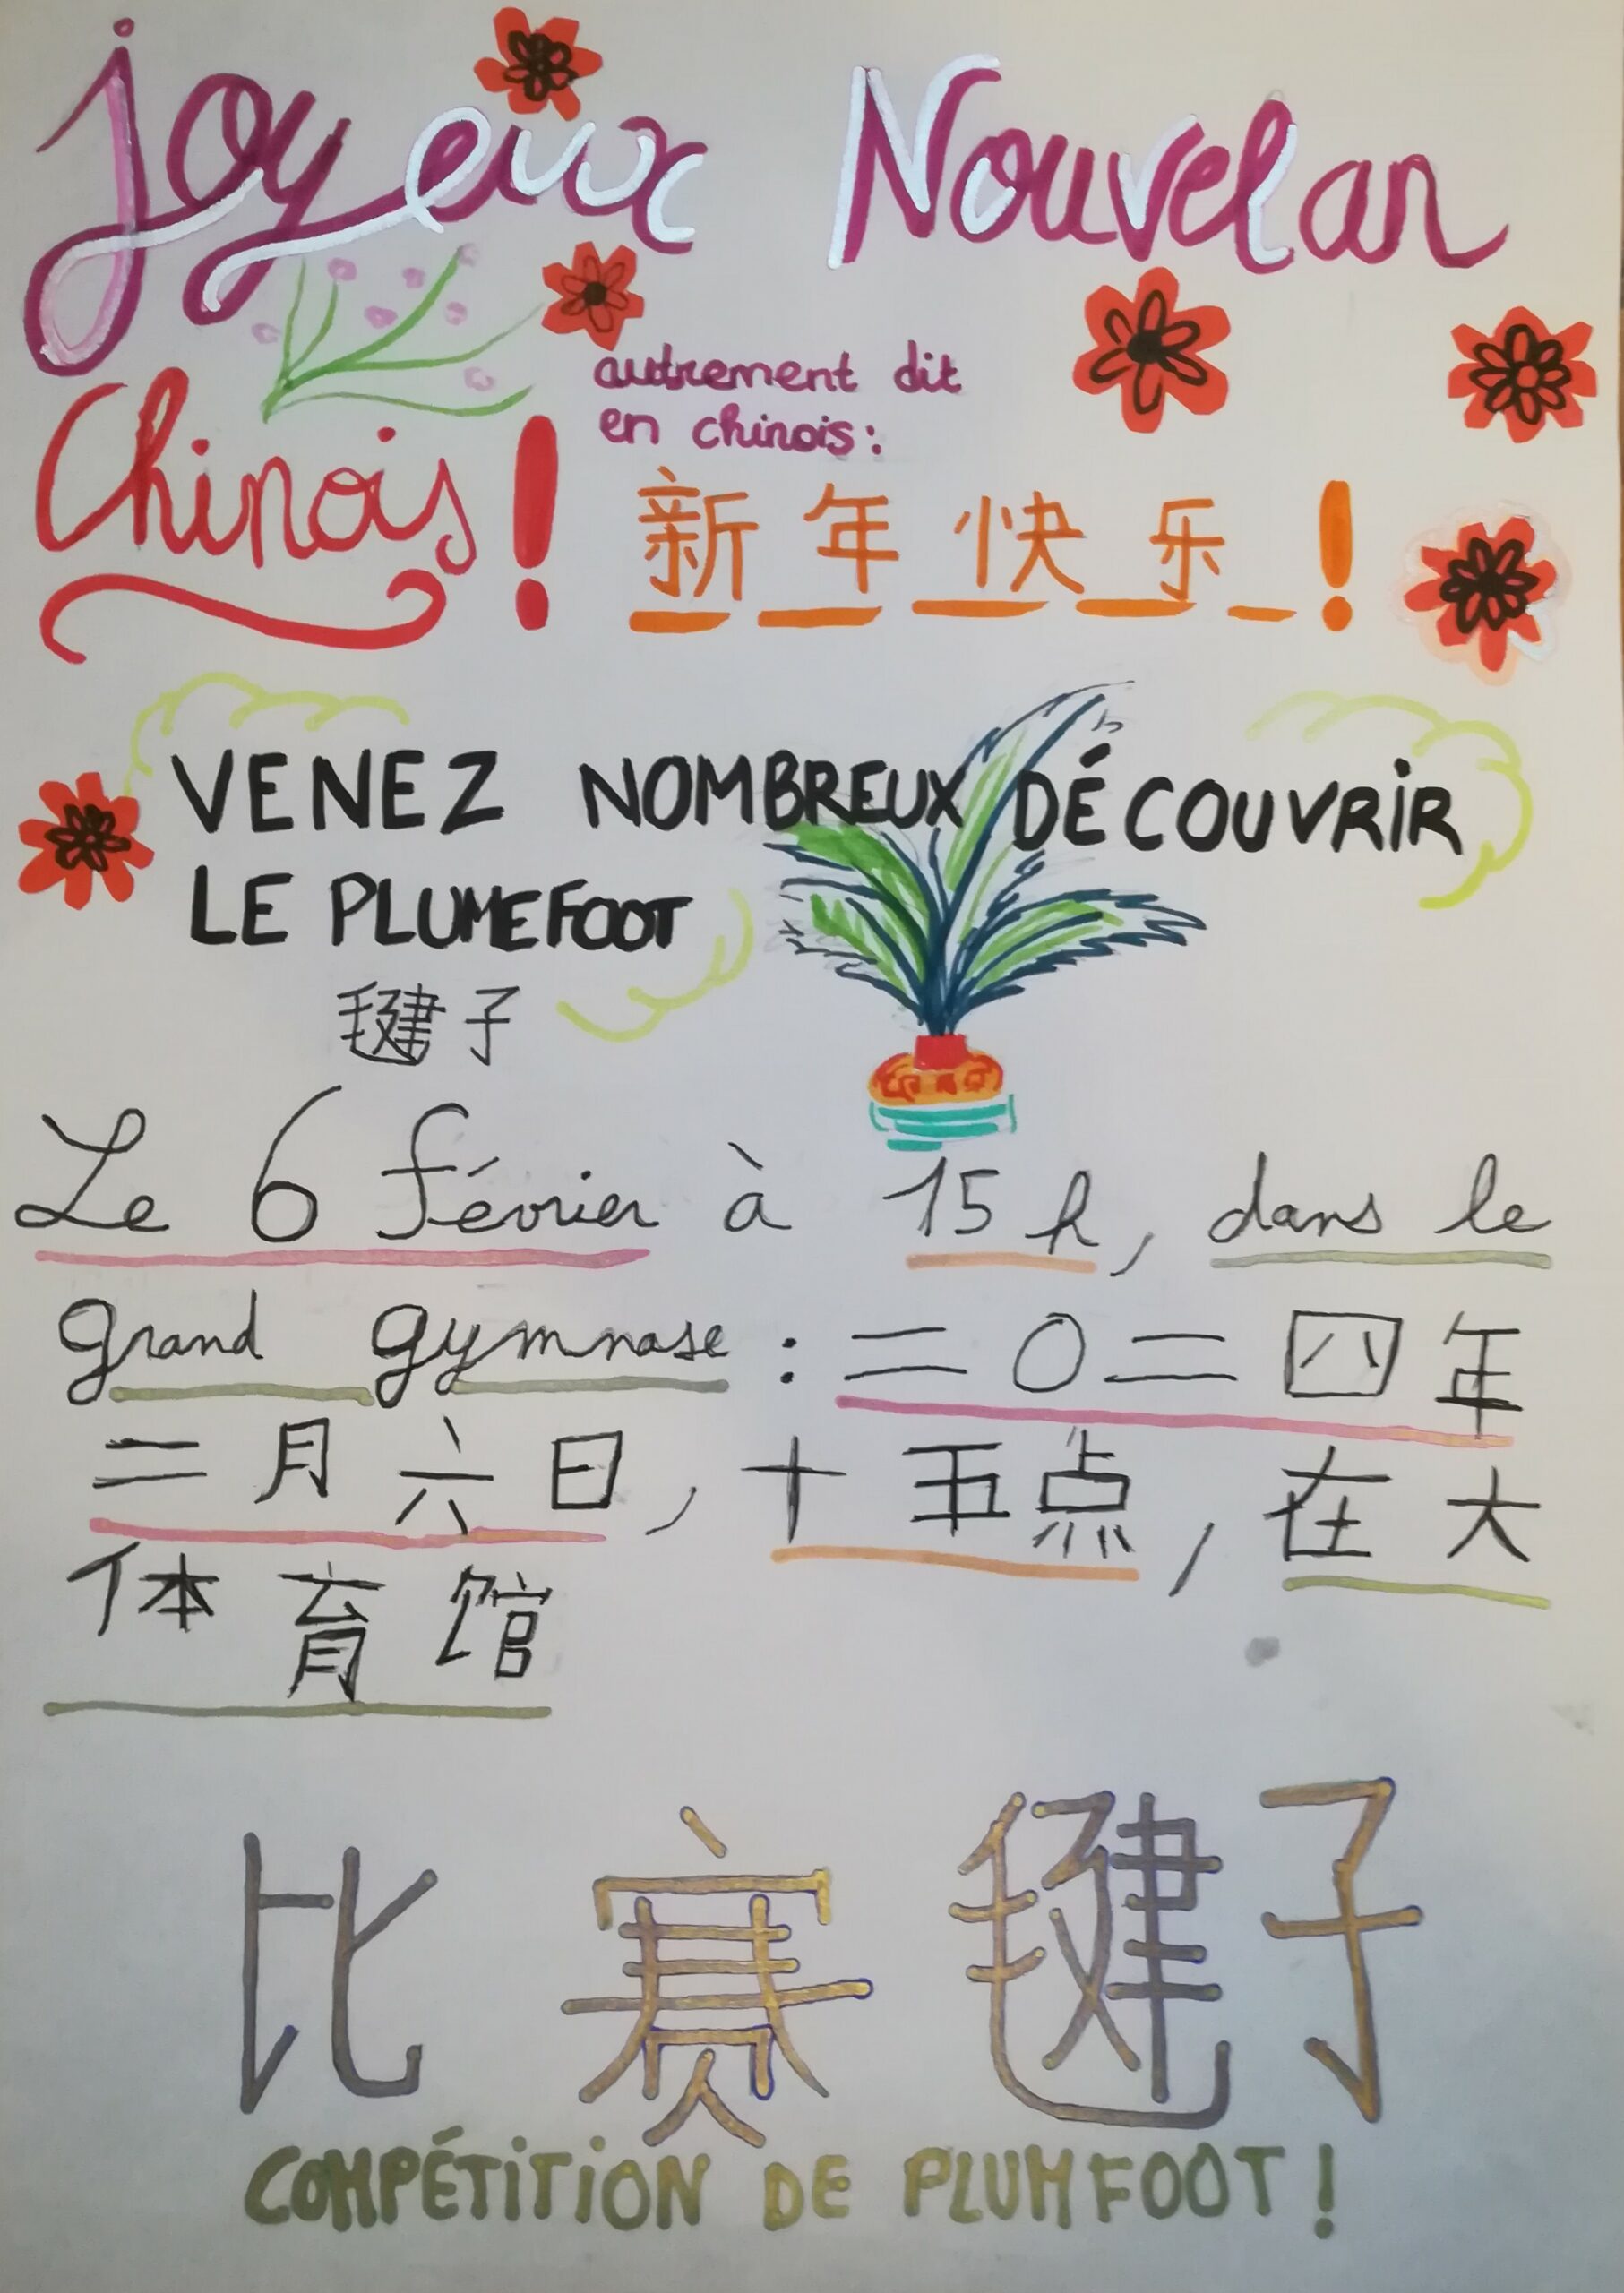 Joyeux Nouvel an
Chinois !
autrement dit
en chinois :
新年快乐 !
VENEZ NOMBREUX DÉCOUVRIR
LE PLUMEFOOT
毽子
Le 6 février à 15 h, dans le
grand gymnase : 二〇二四年
二月六日, 十五点, 在大
体育馆
比赛毽子
COMPÉTITION DE PLUMFOOT !